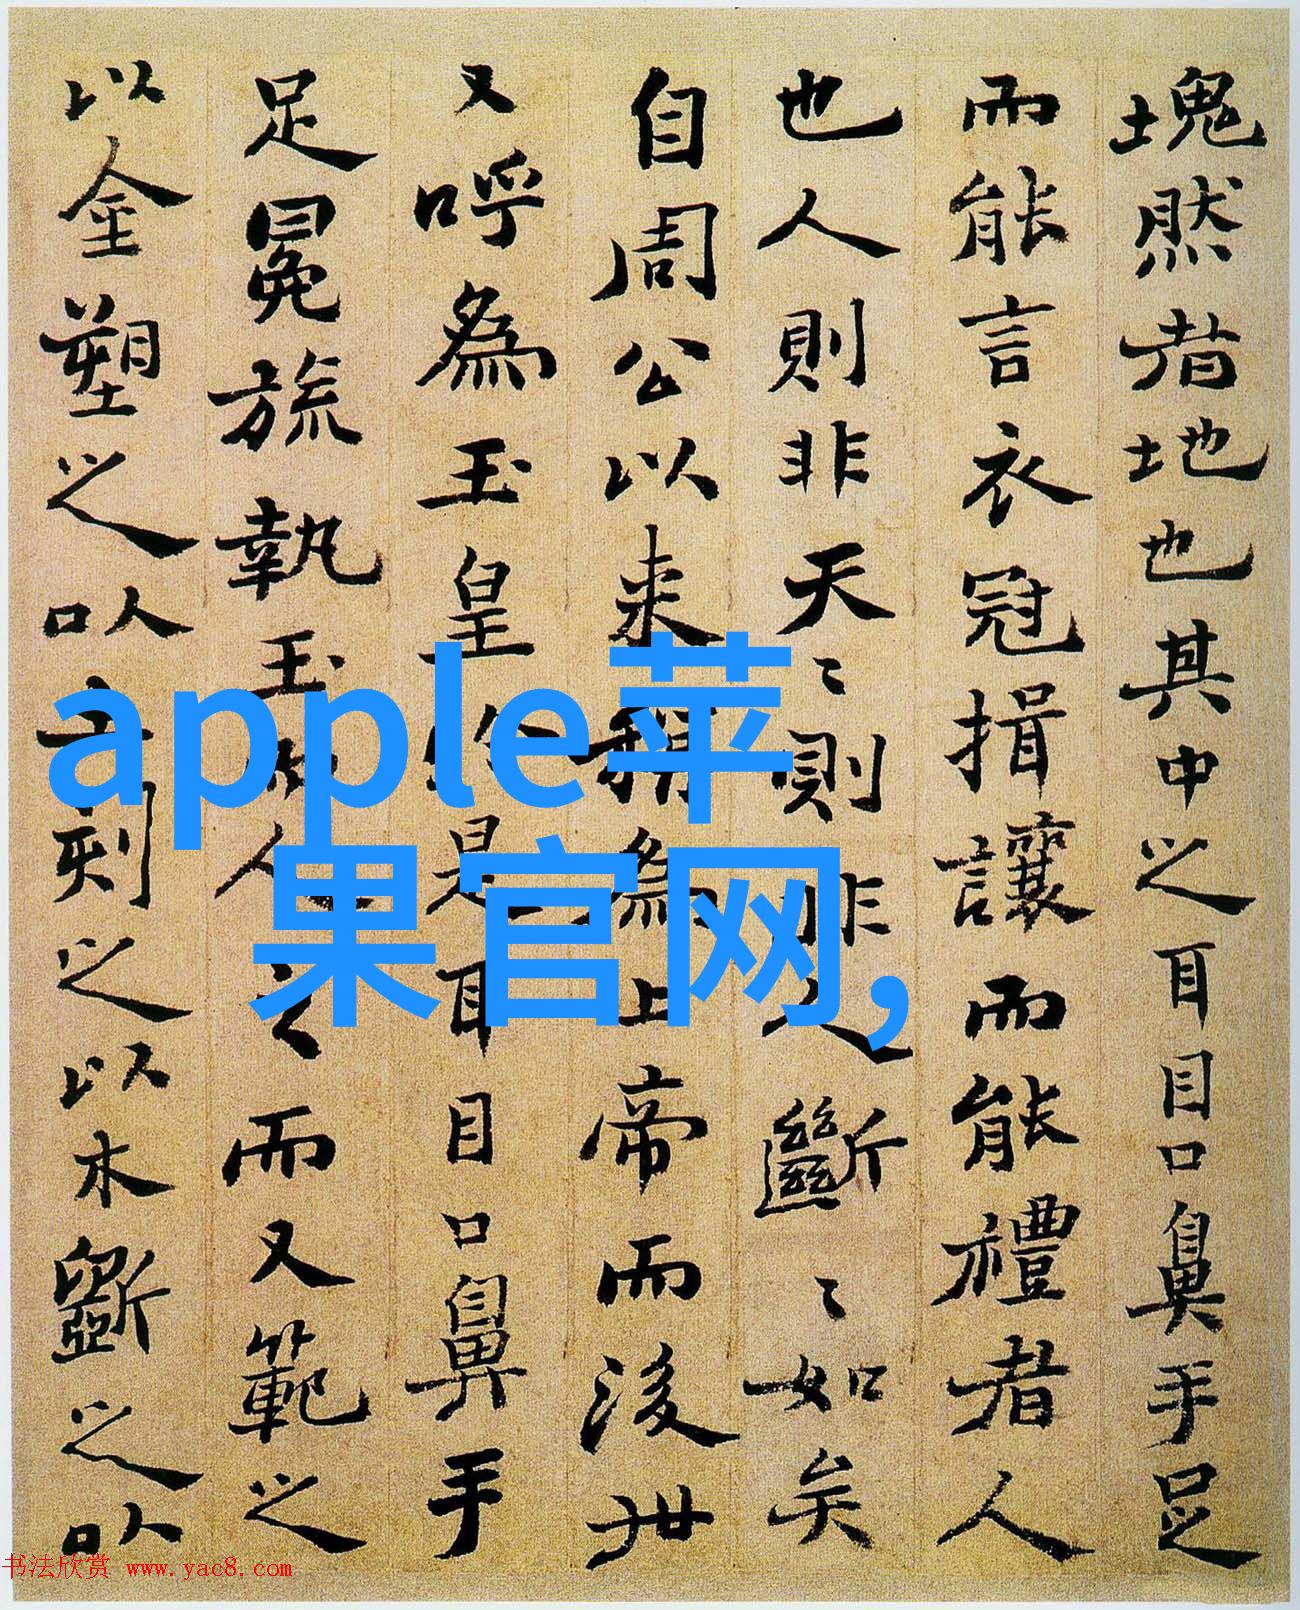 塊然者地也其中之耳目口鼻手足
而能言衣冠揖讓而能禮者人
也人則非天〻則非人斷〻如矣
自周公以来稱為上帝而後世
又呼為玉皇於是耳目口鼻手
足冕旒執玉
人之而又範之
以金塑之以
刻之以木斵之以
apple苹
果官网,
书法欣赏 www.yac8.com